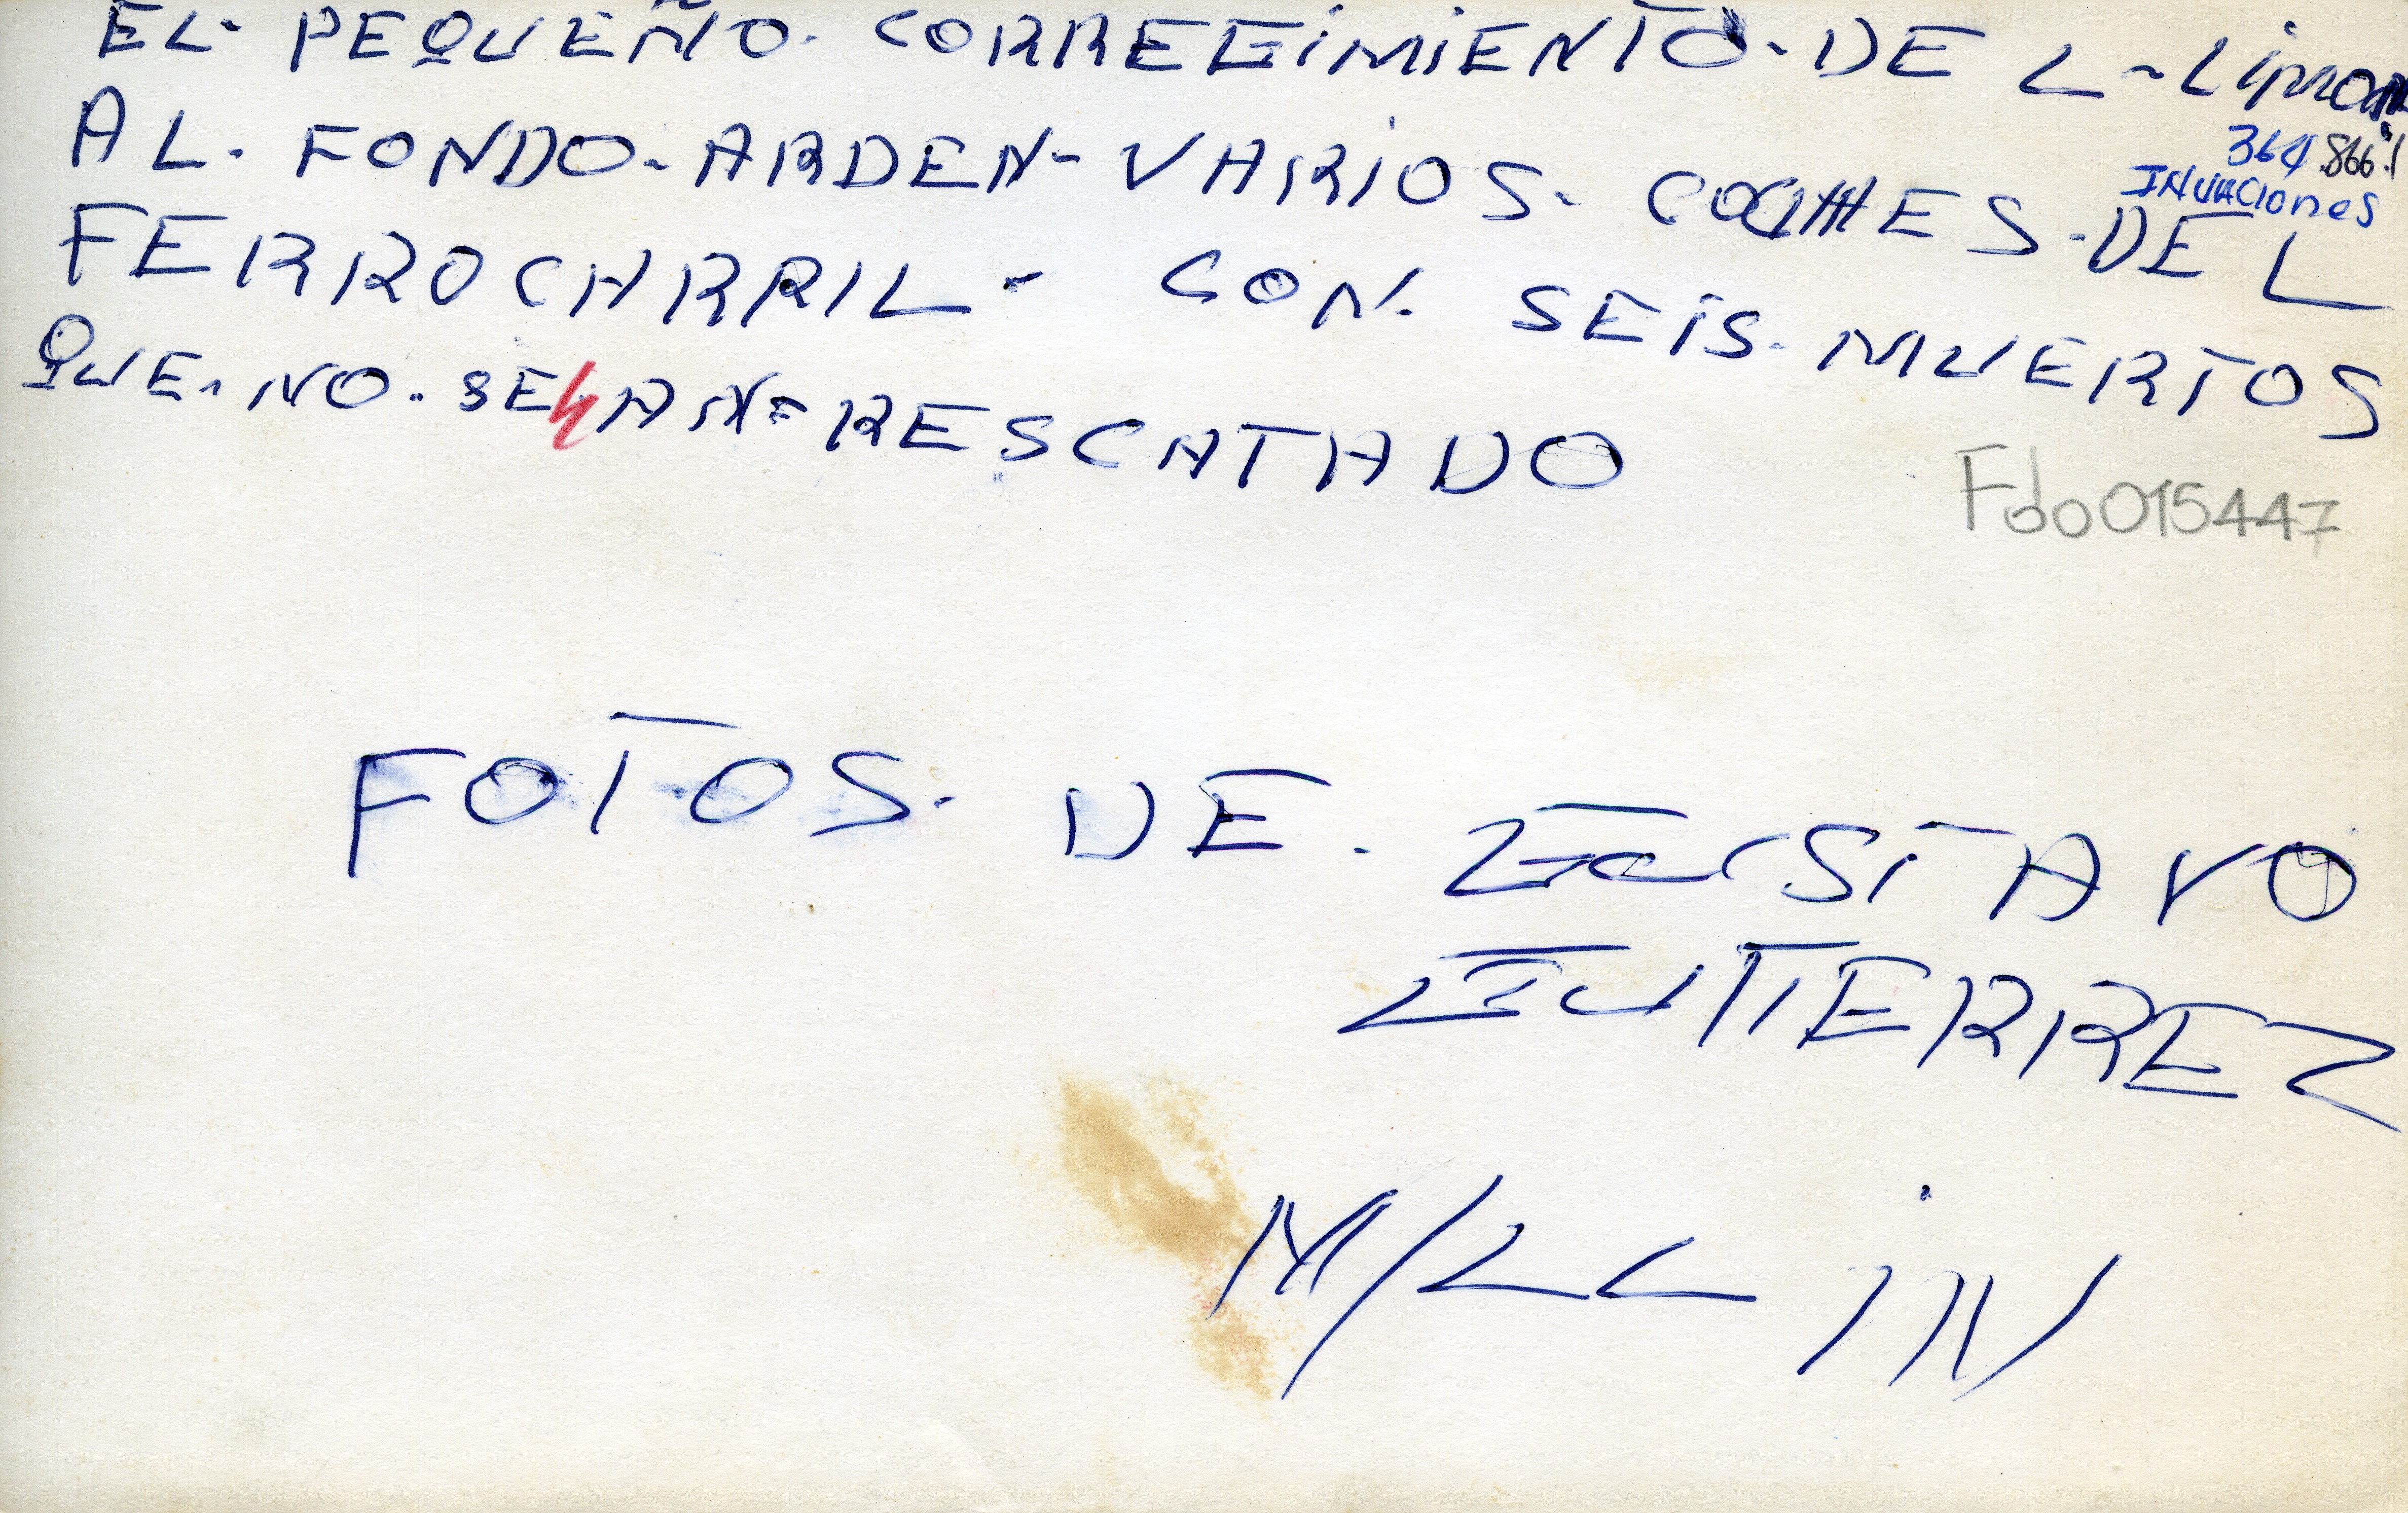 EL- PEQUEÑO. CORREGiMiENTO-DE L-Limon
AL. FONDO-ARDEN-VARiOS. COCHES-DEL
364.866.1
INVACIONES
FERROCARRIL- CON. SEiS-MUERTOS
QUE. NO. SE hAN-RESCATADO
Fdo015447
FOTOS. DE. GUSTAVO
GUTIERREZ
M/LLiN